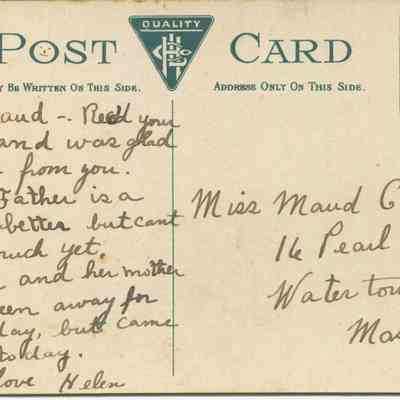 POST CARD
QUALITY
Y BE WRITTEN ON THIS SIDE.
ADDRESS ONLY ON THIS SIDE.
aud -. Rec'd your
and was glad
from you.
Father is a
better but can't
much yet.
and her mother
een away for
day, but came
today.
love Helen
Miss Maud C
16 Pearl
Watertow
Mas